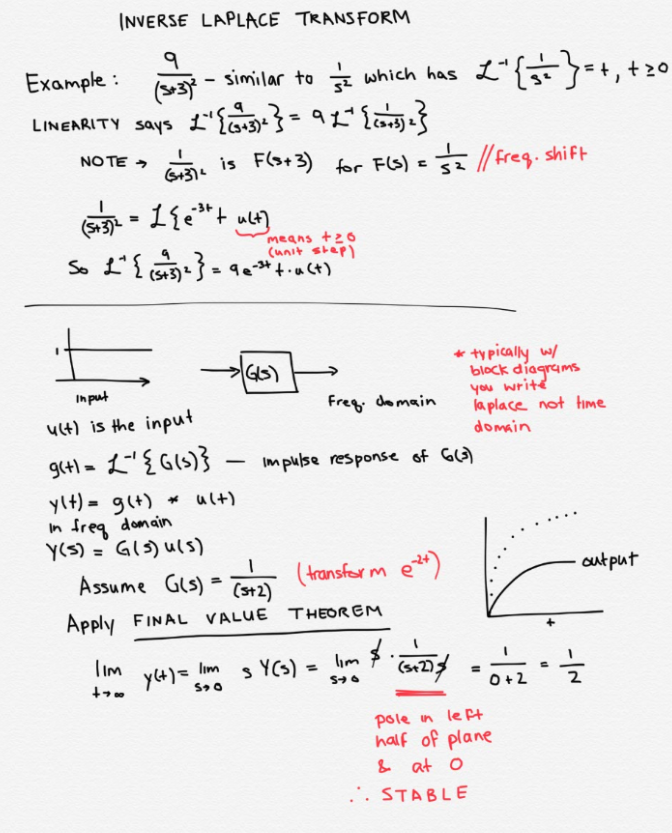 INVERSE LAPLACE TRANSFORM
Example: 9/(s+3)² - similar to 1/s² which has L⁻¹{1/s²} = t, t ≥ 0
LINEARITY says L⁻¹{9/(s+3)²} = 9 L⁻¹{1/(s+3)²}
NOTE → 1/(s+3)² is F(s+3) for F(s) = 1/s² //freq. shift
1/(s+3)² = L{e⁻³ᵗ t u(t)
means t ≥ 0
(unit step)
So L⁻¹{9/(s+3)²} = 9e⁻³ᵗ t · u(t)
1
input
G(s)
Freq. domain
* typically w/
block diagrams
you write
laplace not time
domain
u(t) is the input
g(t) = L⁻¹{G(s)} — impulse response of G(s)
y(t) = g(t) * u(t)
in freq domain
Y(s) = G(s) u(s)
Assume G(s) = 1/(s+2) (transform e⁻²ᵗ)
output
t
Apply FINAL VALUE THEOREM
lim t→∞ y(t) = lim s→0 s Y(s) = lim s→0 s · 1/(s+2)s = 1/0+2 = 1/2
pole in left
half of plane
& at 0
∴ STABLE